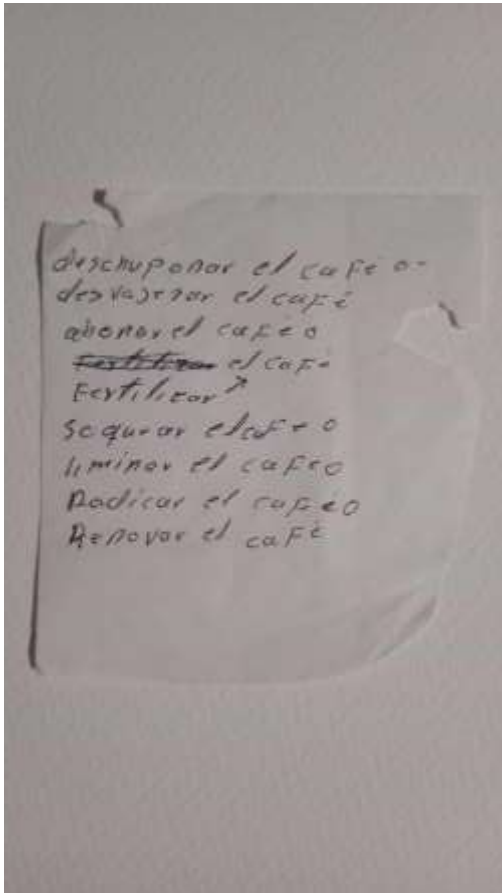 deschuponar el café o-
desvaserar el café
abonar el café o
Fertilizar el café
Fertilizar ↗
Soquear el café o
liminar el café o
Radicar el café o
Renovar el café